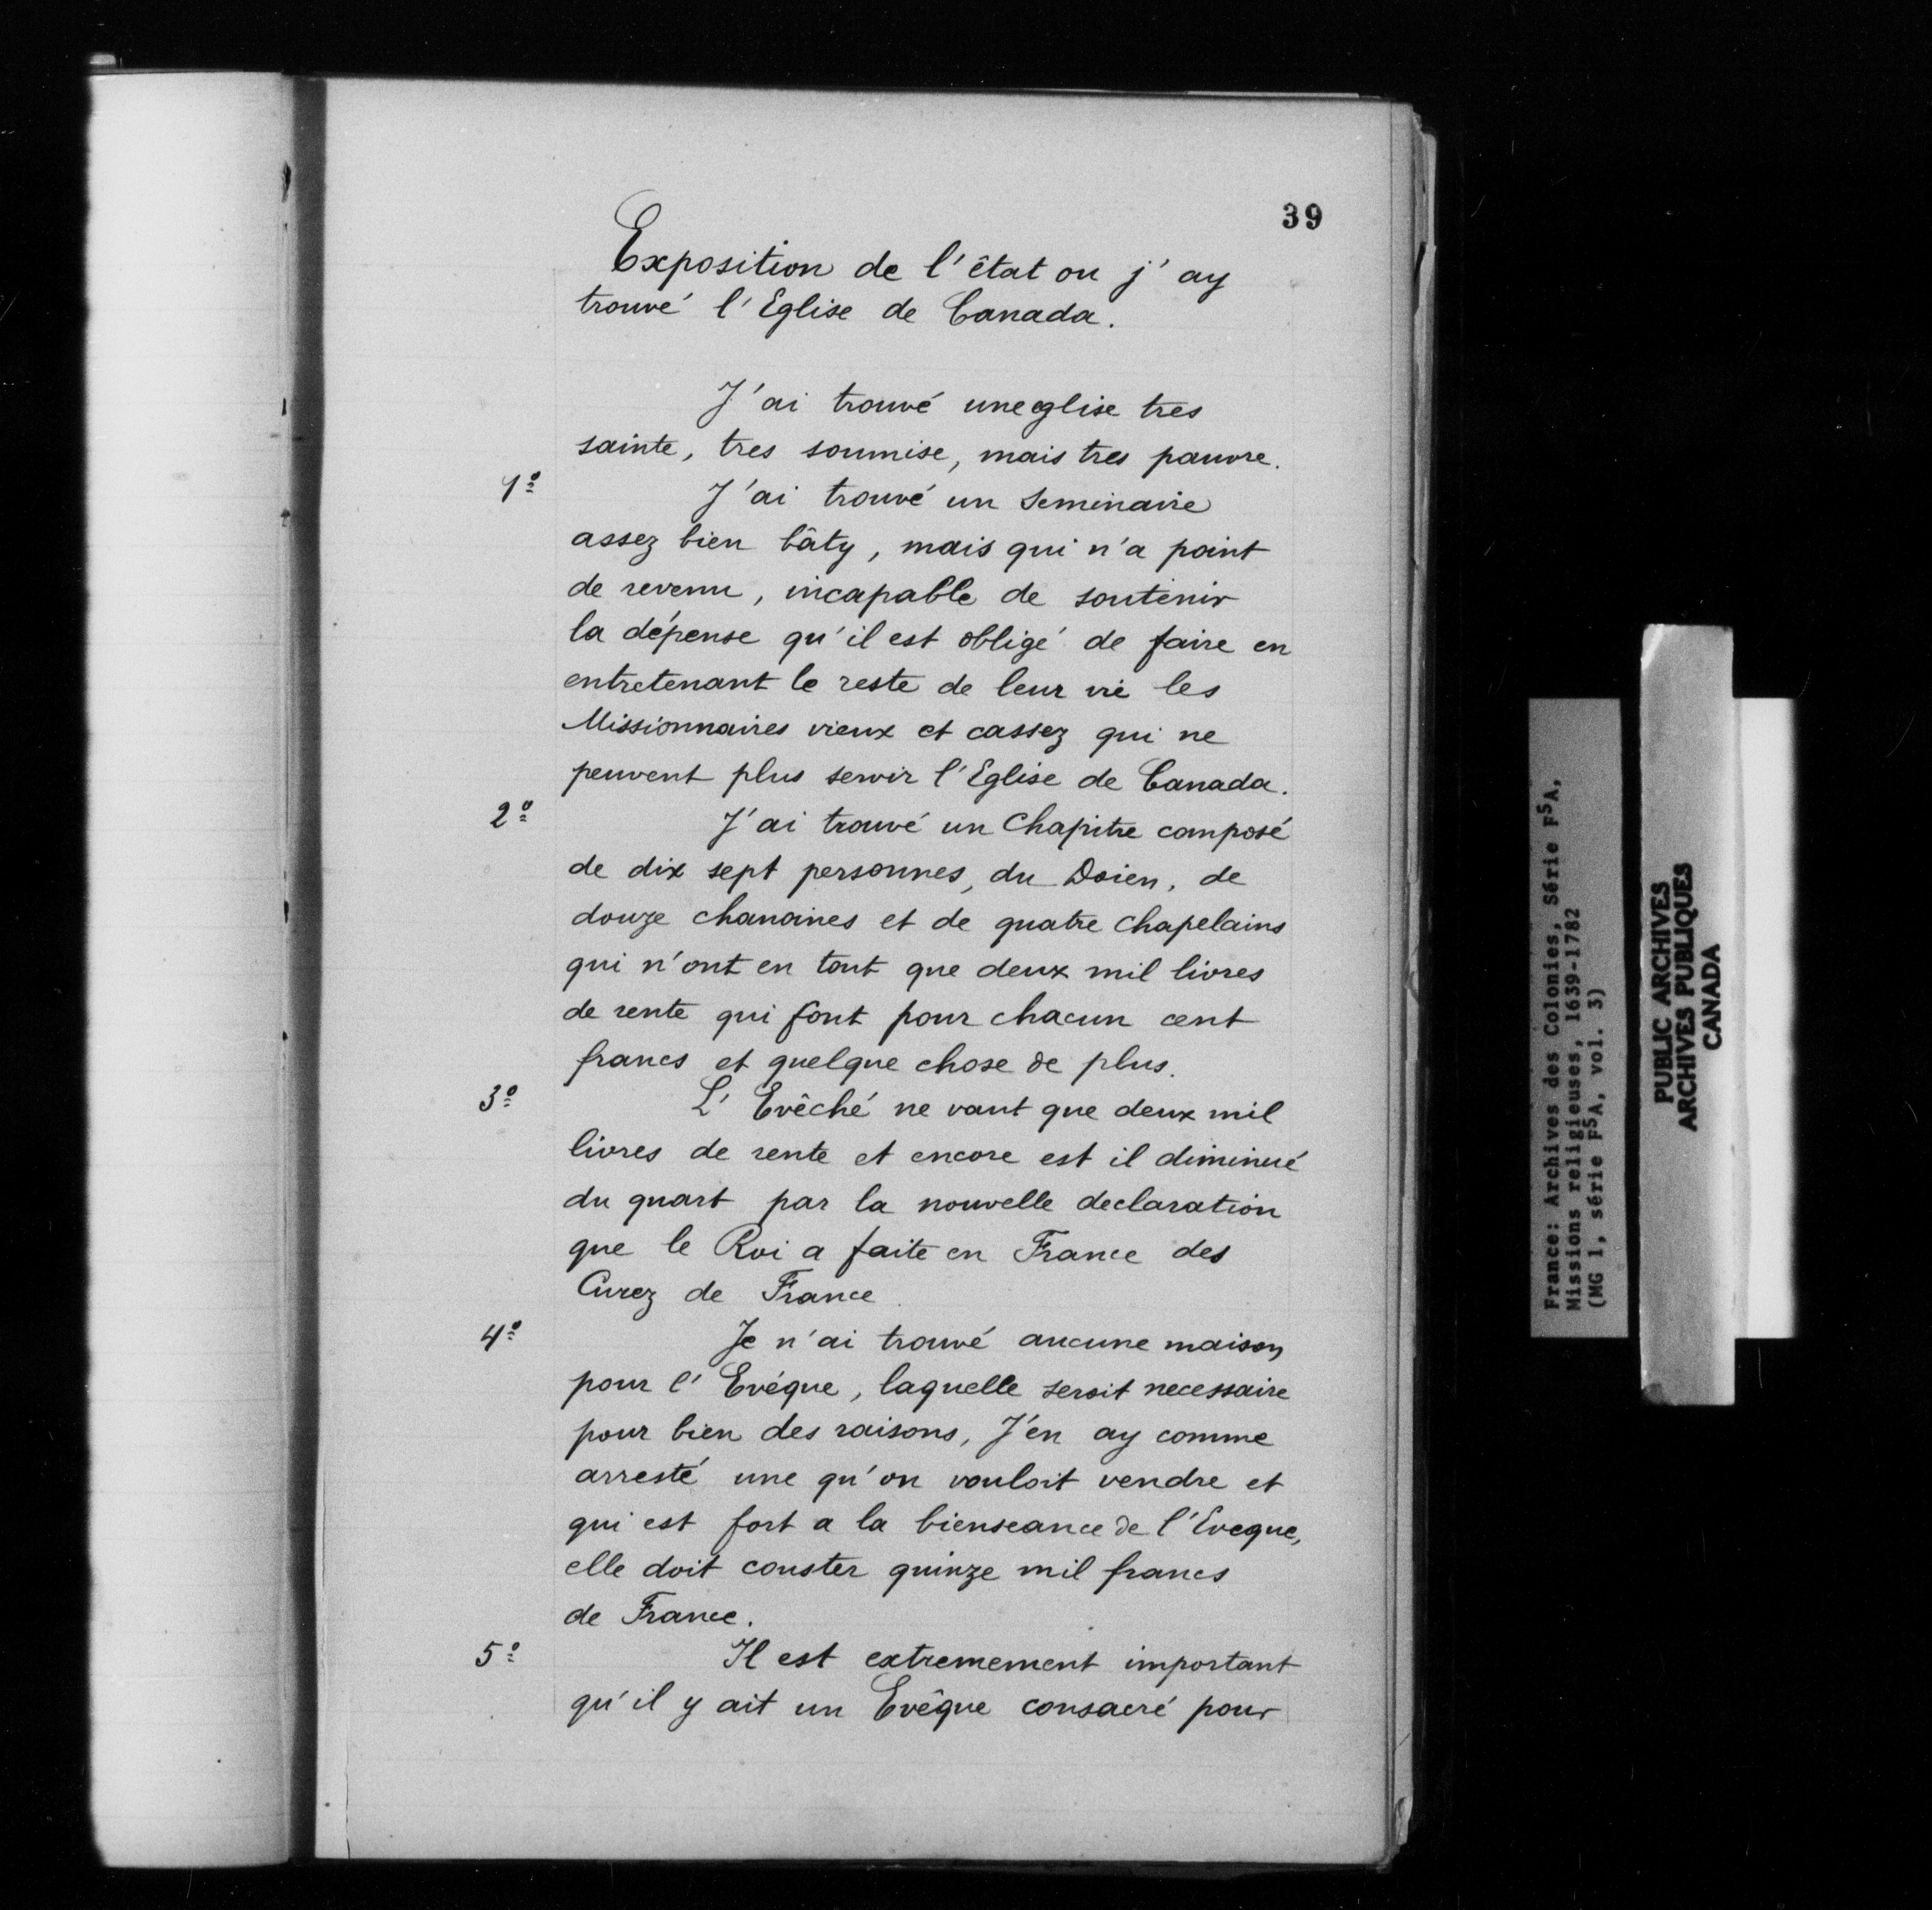 39
Exposition de l'êtat ou j'ay
trouvé l'Eglise de Canada.
J'ai trouvé une eglise tres
sainte, tres soumise, mais tres pauvre.
1º
J'ai trouvé un Seminaire
assez bien bâty, mais qui n'a point
de revenu, incapable de soutenir
la dépense qu'il est obligé de faire en
entretenant le reste de leur vie les
Missionnaires vieux et cassez qui ne
peuvent plus servir l'Eglise de Canada.
2º
J'ai trouvé un Chapitre composé
de dix sept personnes, du Doien, de
douze chanoines et de quatre chapelains
qui n'ont en tout que deux mil livres
de rente qui font pour chacun cent
francs et quelque chose de plus.
3º
L'Evêché ne vaut que deux mil
livres de rente et encore est il diminué
du quart par la nouvelle declaration
que le Roi a faite en France des
Curez de France.
4º
Je n'ai trouvé aucune maison
pour l'Evéque, laquelle seroit necessaire
pour bien des raisons, J'en ay comme
arresté une qu'on vouloit vendre et
qui est fort a la bienseance de l'Eveque,
elle doit couster quinze mil francs
de France.
5º
Il est extremement important
qu'il y ait un Evêque consacré pour
France: Archives des Colonies, Série F5A,
Missions religieuses, 1639-1782
(MG 1, série F5A, vol. 3)
PUBLIC ARCHIVES
ARCHIVES PUBLIQUES
CANADA